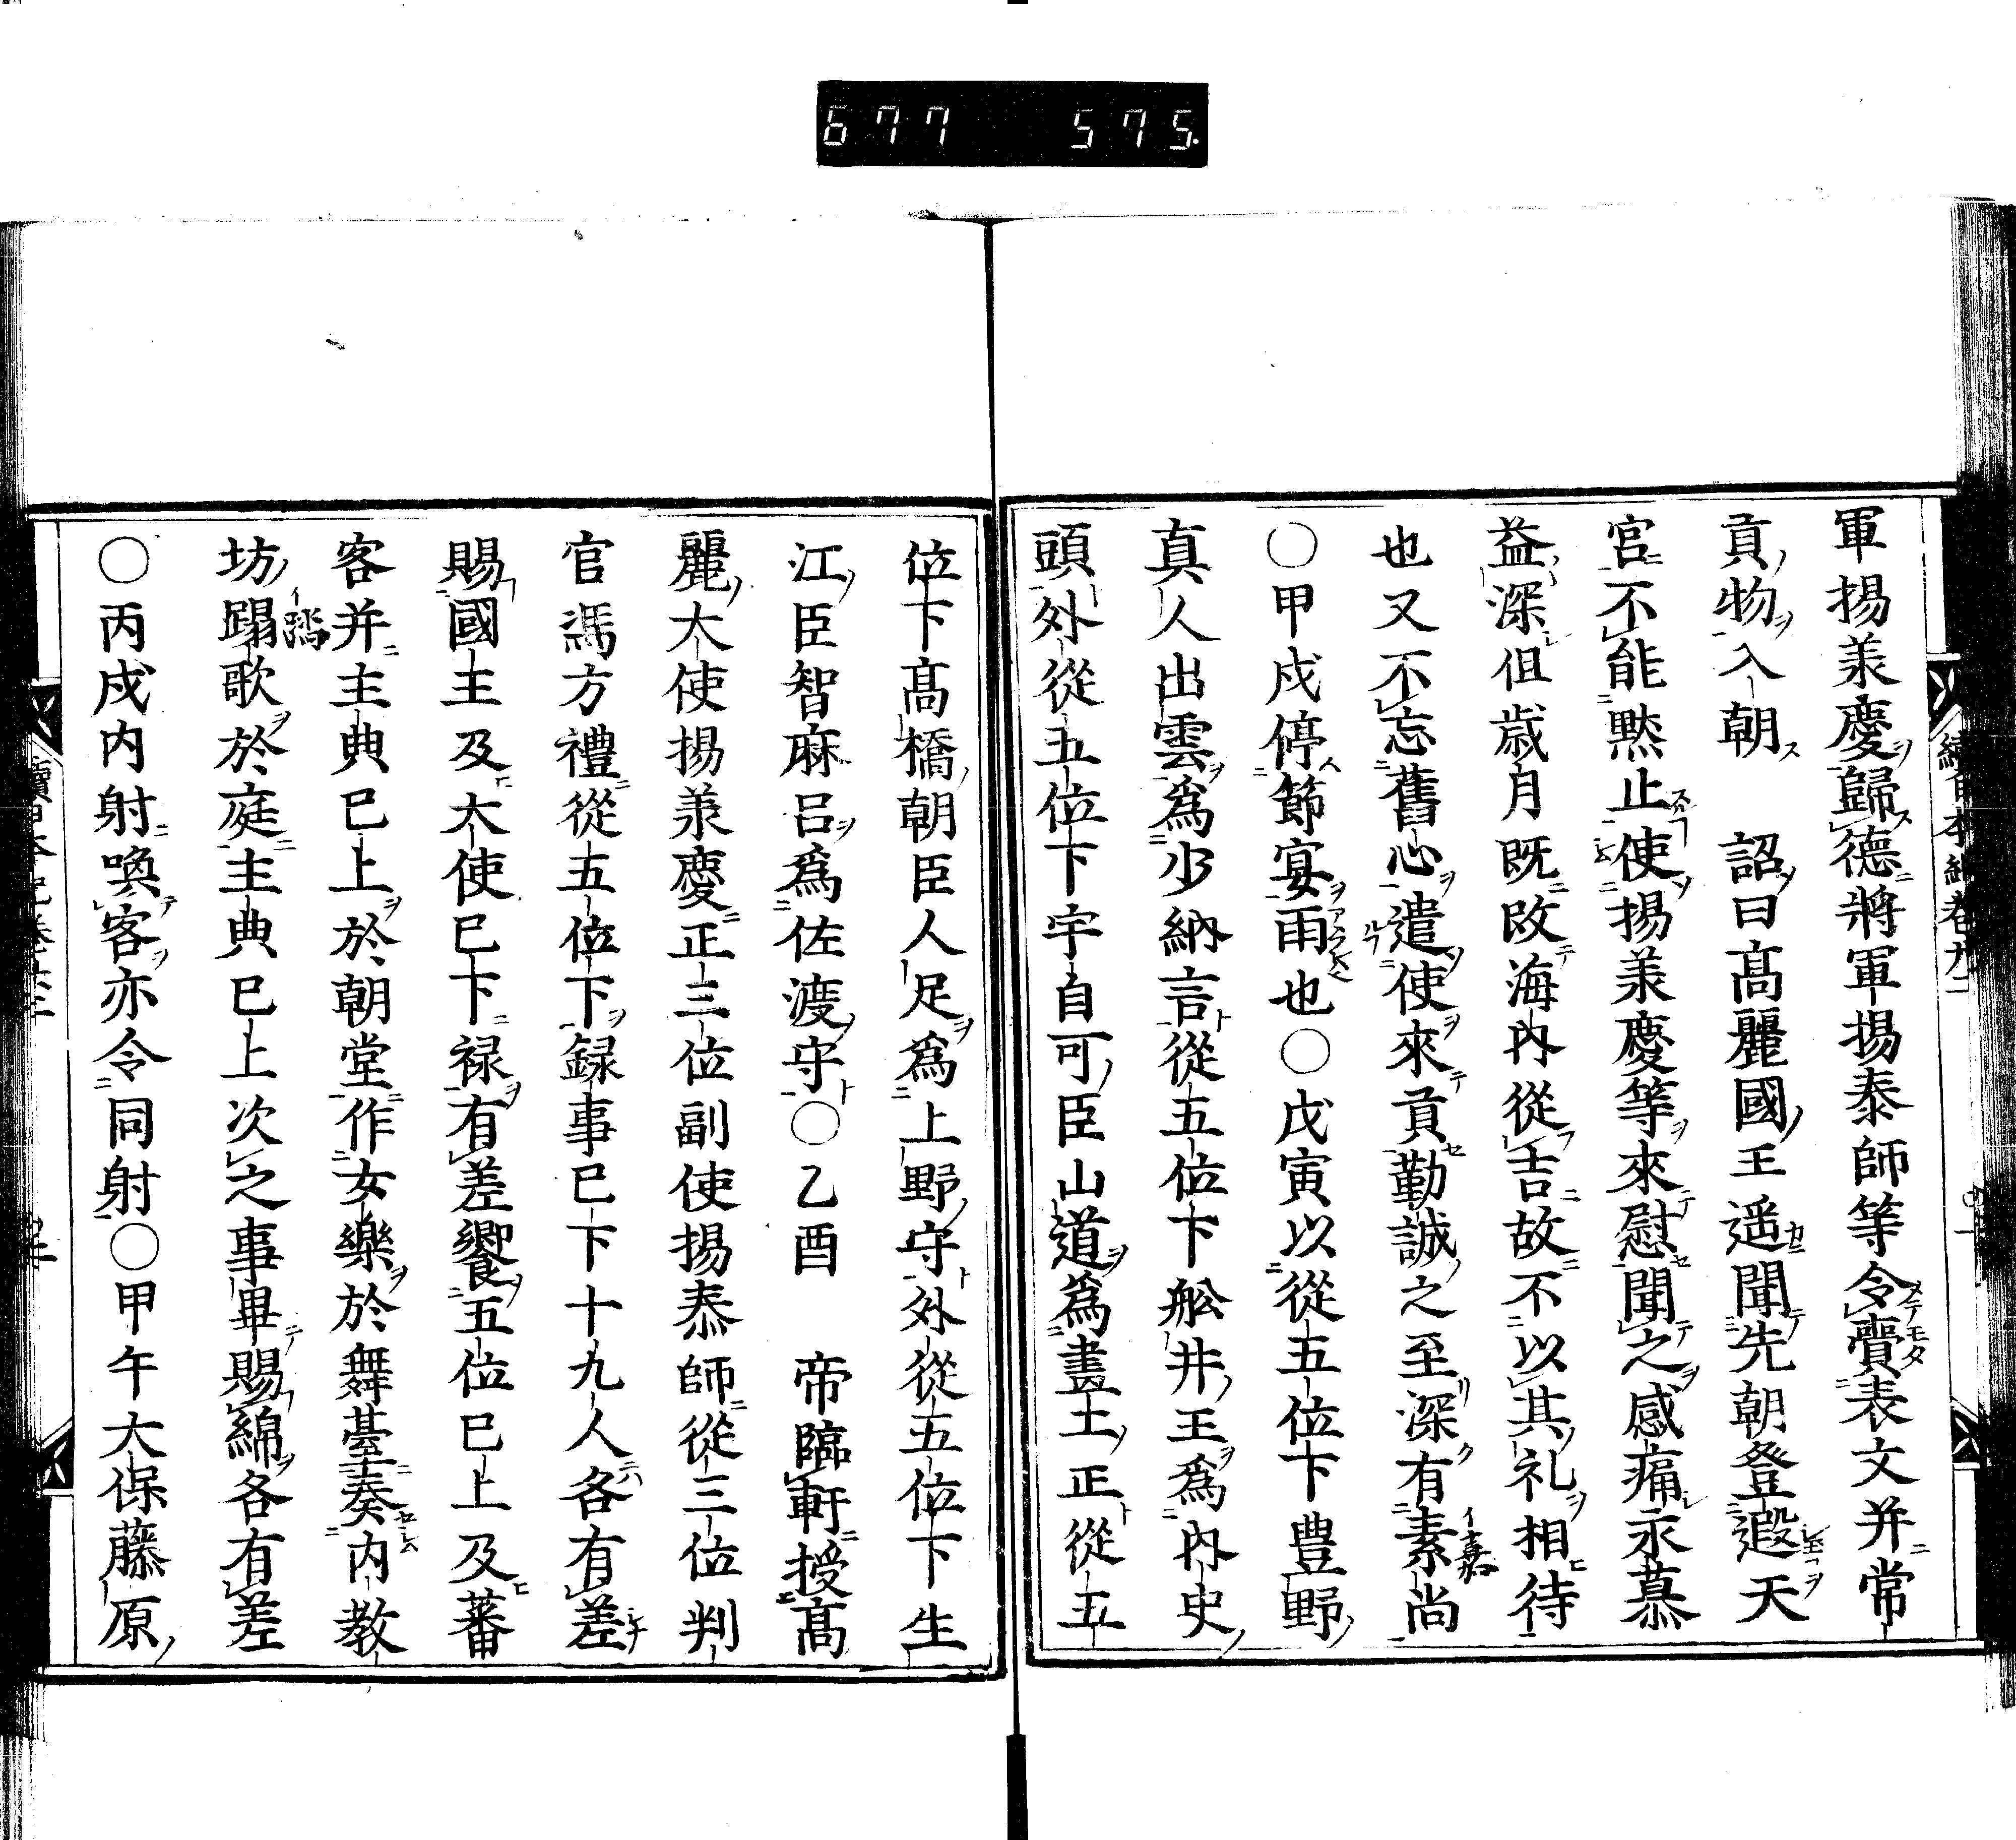 677 575.
軍揚羕慶歸德將軍揚泰師等令賷表文并常
貢物入朝 詔曰髙麗國王遥聞先朝登遐天
宮不能黙止使揚羕慶等來慰聞之感痛永慕
益深但歳月既改海内從吉故不以其礼相待
也又不忘舊心遣使來貢勤誠之至深有素尚
〇甲戍停節宴雨也〇戊寅以從五位下豊野
真人出雲爲少納言從五位下舩井王爲内史
頭外從五位下宇自可臣山道爲畫工正從五
位下髙橋朝臣人足爲上野守外從五位下生
江臣智麻呂爲佐渡守〇乙酉 帝臨軒授髙
麗大使揚羕慶正三位副使揚泰師從三位判
官馮方禮從五位下録事已下十九人各有差
賜國王及大使已下禄有差饗五位已上及蕃
客并主典已上於朝堂作女樂於舞臺奏内教
坊蹋歌於庭主典已上次之事畢賜綿各有差
〇丙戍内射喚客亦令同射〇甲午大保藤原